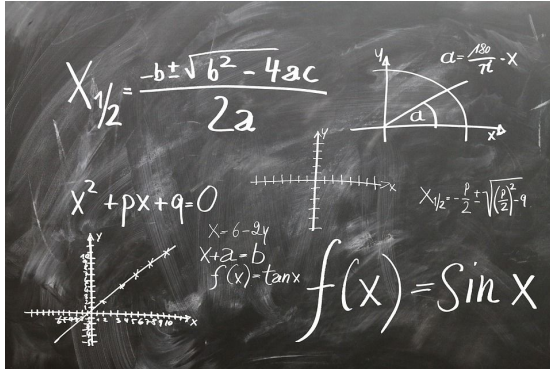 X1/2 = -b ± √b² - 4ac / 2a
y
a = 180/π · x
a
x
y
x
x² + px + q = 0
X1/2 = -p/2 ± √(p/2)² - q
x = 6 - 2y
x + a = b
f(x) = tan x
f(x) = Sin x
y
x